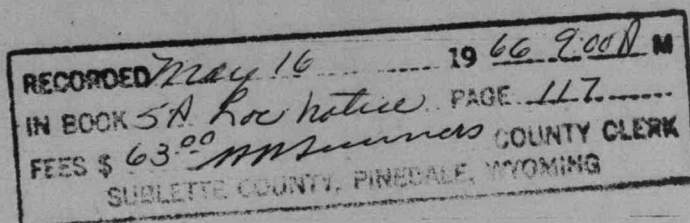 RECORDED May 16 19 66 9:00 A M
IN BOOK 5A Loc notice PAGE 117
FEES $ 63.00 COUNTY CLERK
SUBLETTE COUNTY, PINEDALE, WYOMING